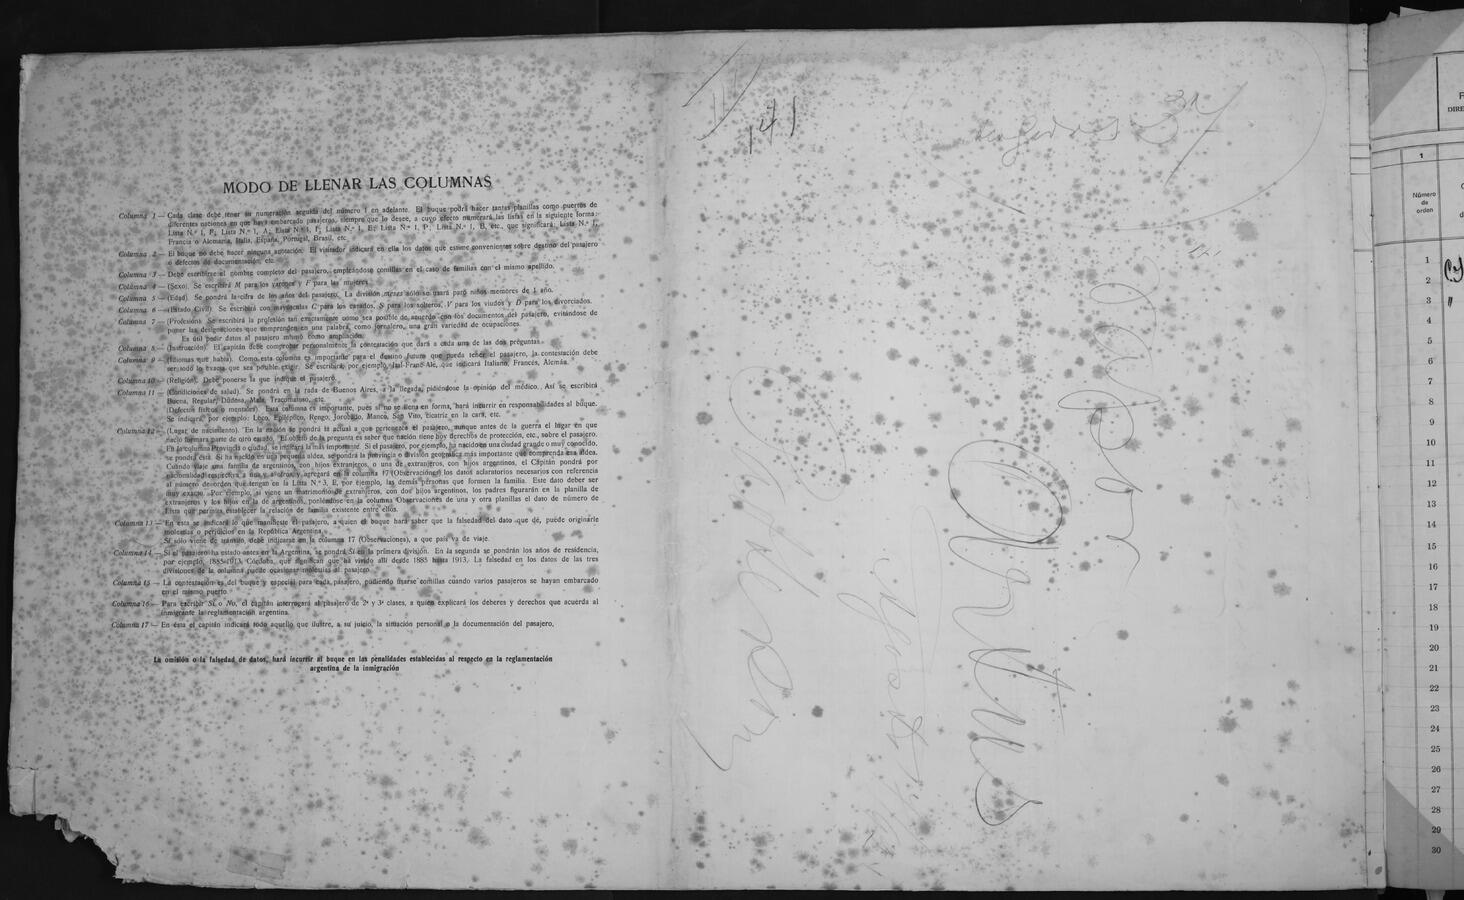 MODO DE LLENAR LAS COLUMNAS
Columna 1 — Cada clase debe tener su numeración seguida del número 1 en adelante. El buque podrá hacer tantas planillas como puertos de
diferentes naciones en que haya embarcado pasajeros, siempre que lo desee, a cuyo efecto numerará las listas en la siguiente forma:
Lista N.º 1, F; Lista N.º 1, A; Lista N.º 1, I; Lista N.º 1, E; Lista N.º 1, P; Lista N.º 1, B, etc., que significará: Lista N.º 1,
Francia o Alemania, Italia, España, Portugal, Brasil, etc.
Columna 2 — El buque no debe hacer ninguna anotación. El visitador indicará en ella los datos que estime convenientes sobre destino del pasajero
o defectos de documentación, etc.
Columna 3 — Debe escribirse el nombre completo del pasajero, empleándose comillas en el caso de familias con el mismo apellido.
Columna 4 — (Sexo). Se escribirá M para los varones y F para las mujeres.
Columna 5 — (Edad). Se pondrá la cifra de los años del pasajero. La división meses sólo se usará para niños menores de 1 año.
Columna 6 — (Estado Civil). Se escribirá con mayúsculas C para los casados, S para los solteros, V para los viudos y D para los divorciados.
Columna 7 — (Profesión). Se escribirá la profesión tan exactamente como sea posible de acuerdo con los documentos del pasajero, evitándose de
poner las designaciones que comprenden en una palabra, como jornalero, una gran variedad de ocupaciones.
Es útil pedir datos al pasajero mismo como ampliación.
Columna 8 — (Instrucción). El capitán debe comprobar personalmente la contestación que dará a cada una de las dos preguntas.
Columna 9 — (Idiomas que habla). Como esta columna es importante para el destino futuro que pueda tener el pasajero, la contestación debe
ser todo lo exacta que sea posible exigir. Se escribirá, por ejemplo, Ital-Franc-Ale, que indicará Italiano, Francés, Alemán.
Columna 10 — (Religión). Debe ponerse la que indique el pasajero.
Columna 11 — (Condiciones de salud). Se pondrá en la rada de Buenos Aires, a la llegada, pidiéndose la opinión del médico. Así se escribirá
Buena, Regular, Dudosa, Mala, Tracomatoso, etc.
(Defectos físicos o mentales). Esta columna es importante, pues si no se llena en forma, hará incurrir en responsabilidades al buque.
Se indicará, por ejemplo: Loco, Epiléptico, Rengo, Jorobado, Manco, San Vito, cicatriz en la cara, etc.
Columna 12 — (Lugar de nacimiento). En la nación se pondrá la actual a que pertenezca el pasajero, aunque antes de la guerra el lugar en que
nació formara parte de otro estado. El objeto de la pregunta es saber que nación tiene hoy derechos de protección, etc., sobre el pasajero.
En la columna Provincia o ciudad, se indicará la más importante. Si el pasajero, por ejemplo, ha nacido en una ciudad grande o muy conocida,
se pondrá ésta. Si ha nacido en una pequeña aldea, se pondrá la provincia o división geográfica más importante que comprenda esa aldea.
Cuando viaje una familia de argentinos, con hijos extranjeros, o una de extranjeros, con hijos argentinos, el Capitán pondrá por
nacionalidad respectiva a unos y a otros, y agregará en la columna 17 (Observaciones) los datos aclaratorios necesarios con referencia
al número de orden que tengan en la Lista N.º 3, E, por ejemplo, las demás personas que formen la familia. Este dato deber ser
muy exacto. Por ejemplo, si viene un matrimonio de extranjeros, con dos hijos argentinos, los padres figurarán en la planilla de
extranjeros y los hijos en la de argentinos, poniéndose en la columna Observaciones de una y otra planillas el dato de número de
Lista que permita establecer la relación de familia existente entre ellos.
Columna 13 — En ésta se indicará lo que manifieste el pasajero, a quien el buque hará saber que la falsedad del dato que dé, puede originarle
molestias o perjuicios en la República Argentina.
Si sólo viene de tránsito, debe indicarse en la columna 17 (Observaciones), a que país va de viaje.
Columna 14 — Si el pasajero ha estado antes en la Argentina, se pondrá Si en la primera división. En la segunda se pondrán los años de residencia,
por ejemplo, 1885-1913, Córdoba, que significan que ha vivido allí desde 1885 hasta 1913. La falsedad en los datos de las tres
divisiones de la columna puede ocasionar molestias al pasajero.
Columna 15 — La contestación es del buque y especial para cada pasajero, pudiendo usarse comillas cuando varios pasajeros se hayan embarcado
en el mismo puerto.
Columna 16 — Para escribir Sí o No, el capitán interrogará al pasajero de 2ª y 3ª clases, a quien explicará los deberes y derechos que acuerda al
inmigrante la reglamentación argentina.
Columna 17 — En ésta el capitán indicará todo aquello que ilustre, a su juicio, la situación personal o la documentación del pasajero,
La omisión o la falsedad de datos, hará incurrir al buque en las penalidades establecidas al respecto en la reglamentación
argentina de la inmigración
IV
141
DIRE
1
Número
de
orden
1
2
3 "
4
5
6
7
8
9
10
11
12
13
14
15
16
17
18
19
20
21
22
23
24
25
26
27
28
29
30